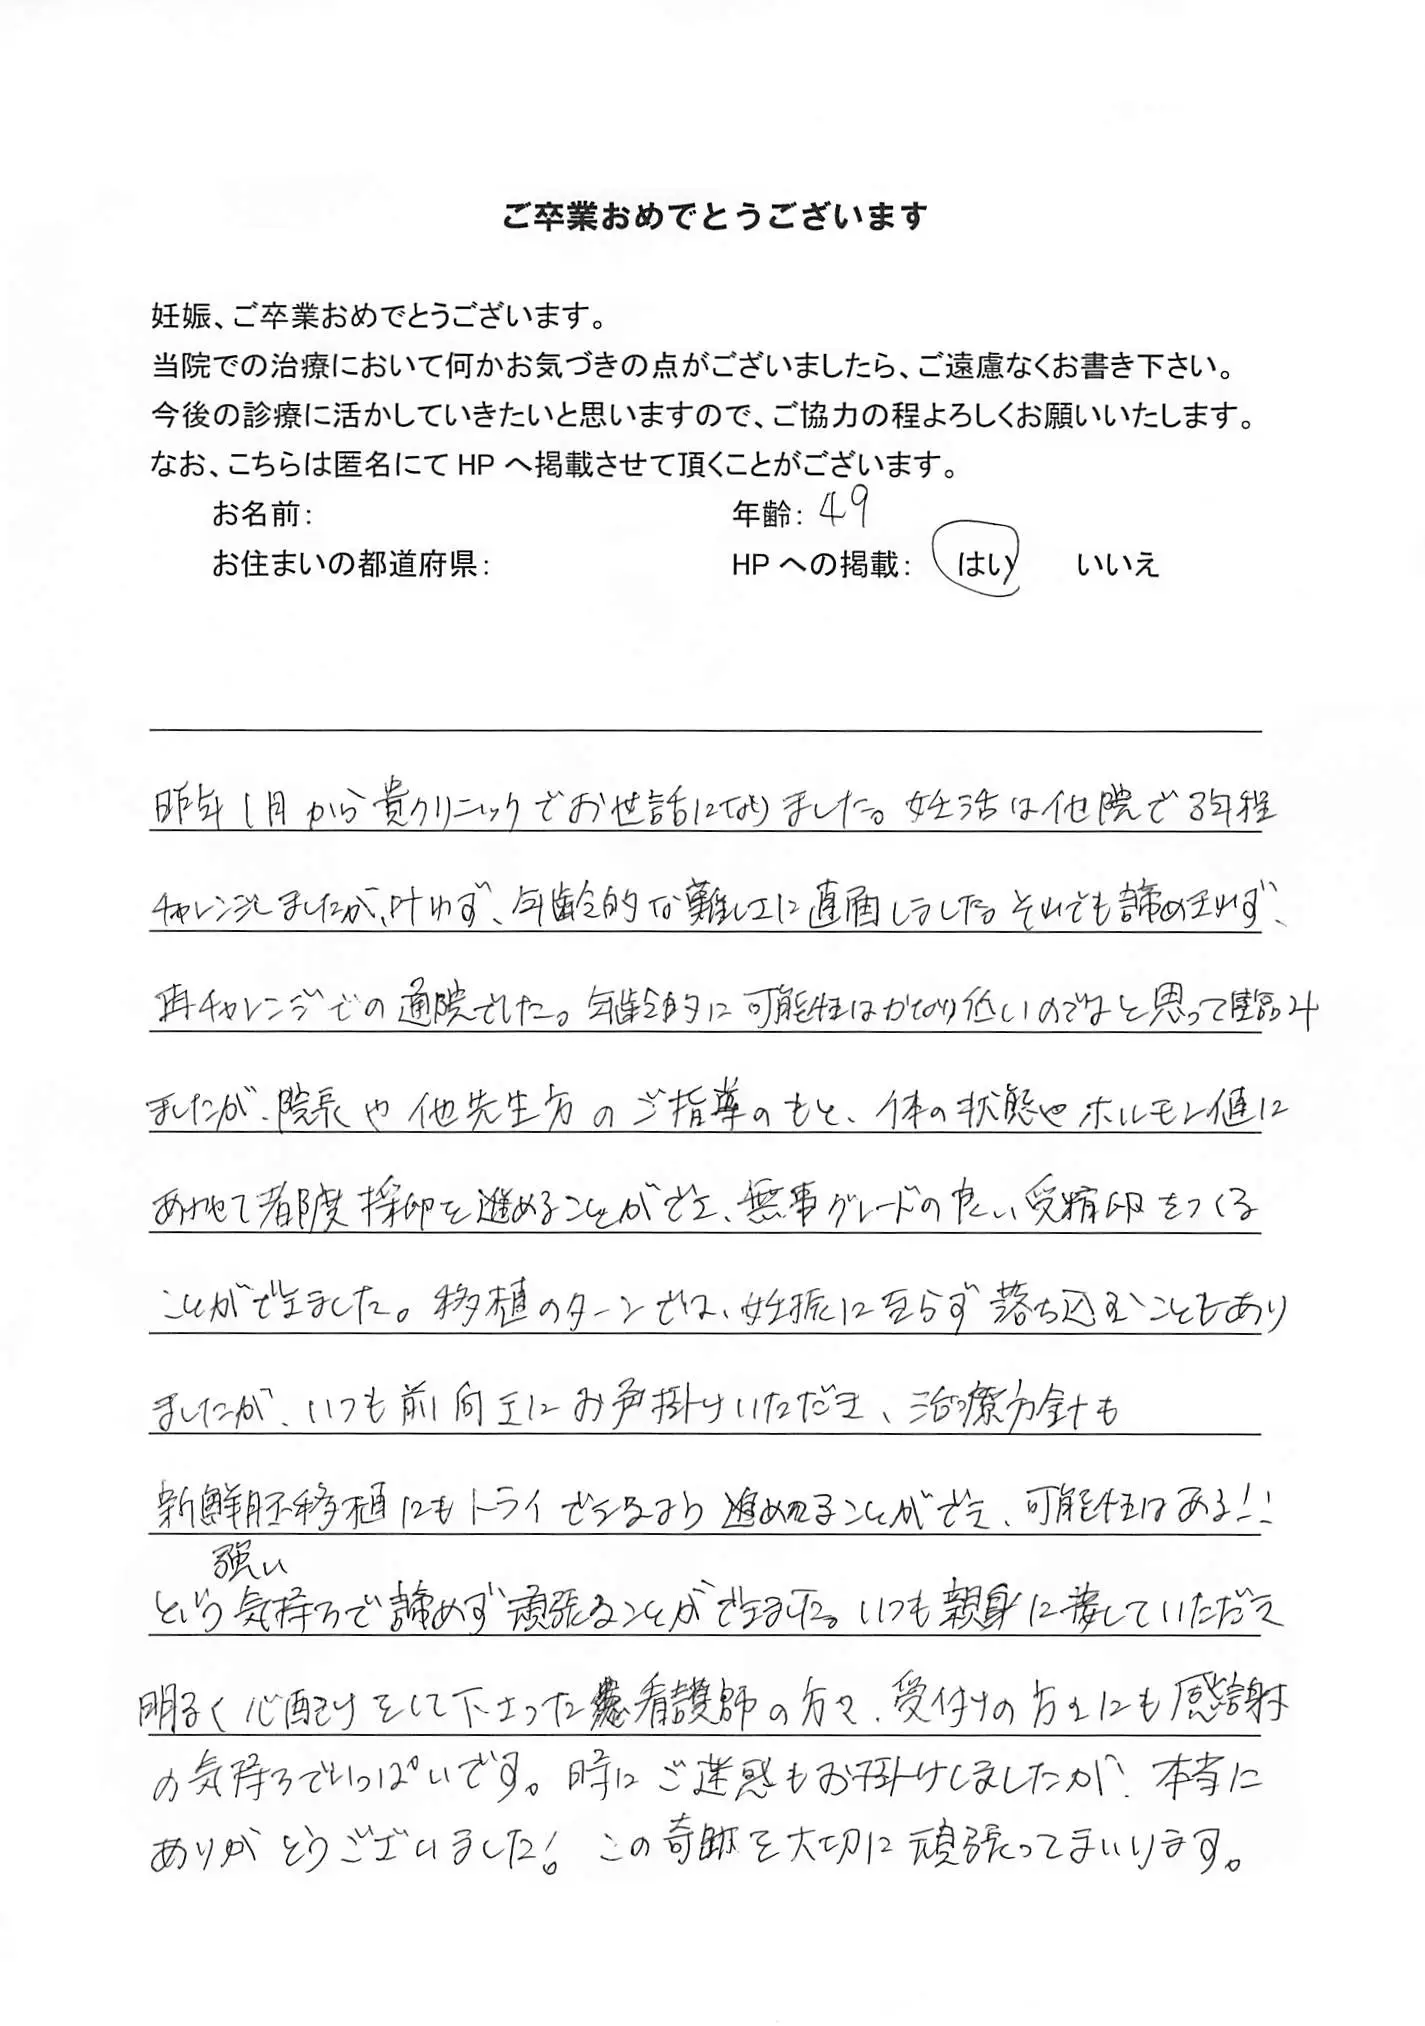 ご卒業おめでとうございます
妊娠、ご卒業おめでとうございます。
当院での治療において何かお気づきの点がございましたら、ご遠慮なくお書き下さい。
今後の診療に活かしていきたいと思いますので、ご協力の程よろしくお願いいたします。
なお、こちらは匿名にて HP へ掲載させて頂くことがございます。
お名前: 年齢: 49
お住まいの都道府県: HP への掲載: はい いいえ
昨年1月から貴クリニックでお世話になりました。妊活は他院で3年程
チャレンジしましたが、叶わず、年齢的な難しさに直面しました。それでも諦めきれず、
再チャレンジでの通院でした。年齢的に可能性はかなり低いのでは、と思って臨み
ましたが、院長や他先生方のご指導のもと、体の状態やホルモン値に
あわせて都度採卵を進めることができ、無事グレードの良い受精卵をつくる
ことができました。移植のターンでは、妊娠に至らず落ち込むこともあり
ましたが、いつも前向きにお声掛けいただき、治療方針も
新鮮胚移植にもトライできるよう進めることができ、可能性はある!!
強い
という気持ちで諦めず頑張ることができました。いつも親身に接していただき
明るく心配りをして下さった看護師の方々、受付の方々にも感謝
の気持ちでいっぱいです。時にご迷惑もお掛けしましたが、本当に
ありがとうございました! この奇跡を大切に頑張ってまいります。